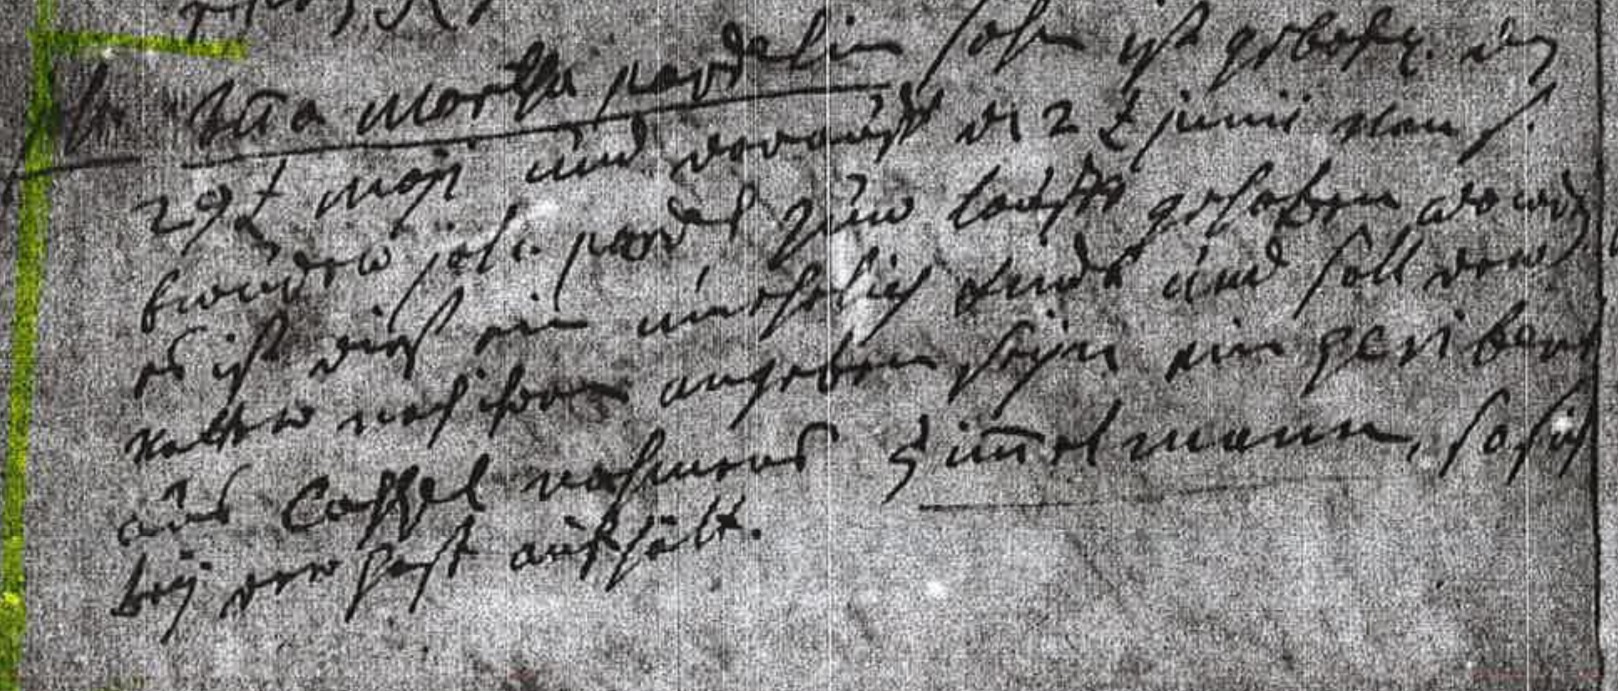 Anna Martha pardelin sohn ist gebohrn den
29t Maji und darauff den 2 t Junii von
bruder joh. pardel zur tauff gehoben worden
es ist dieß ein unehelich kindt und soll der
vatter angeben seyn ein
aus Cassel nahmens Himelmann, so sich
bey der post aufhält.